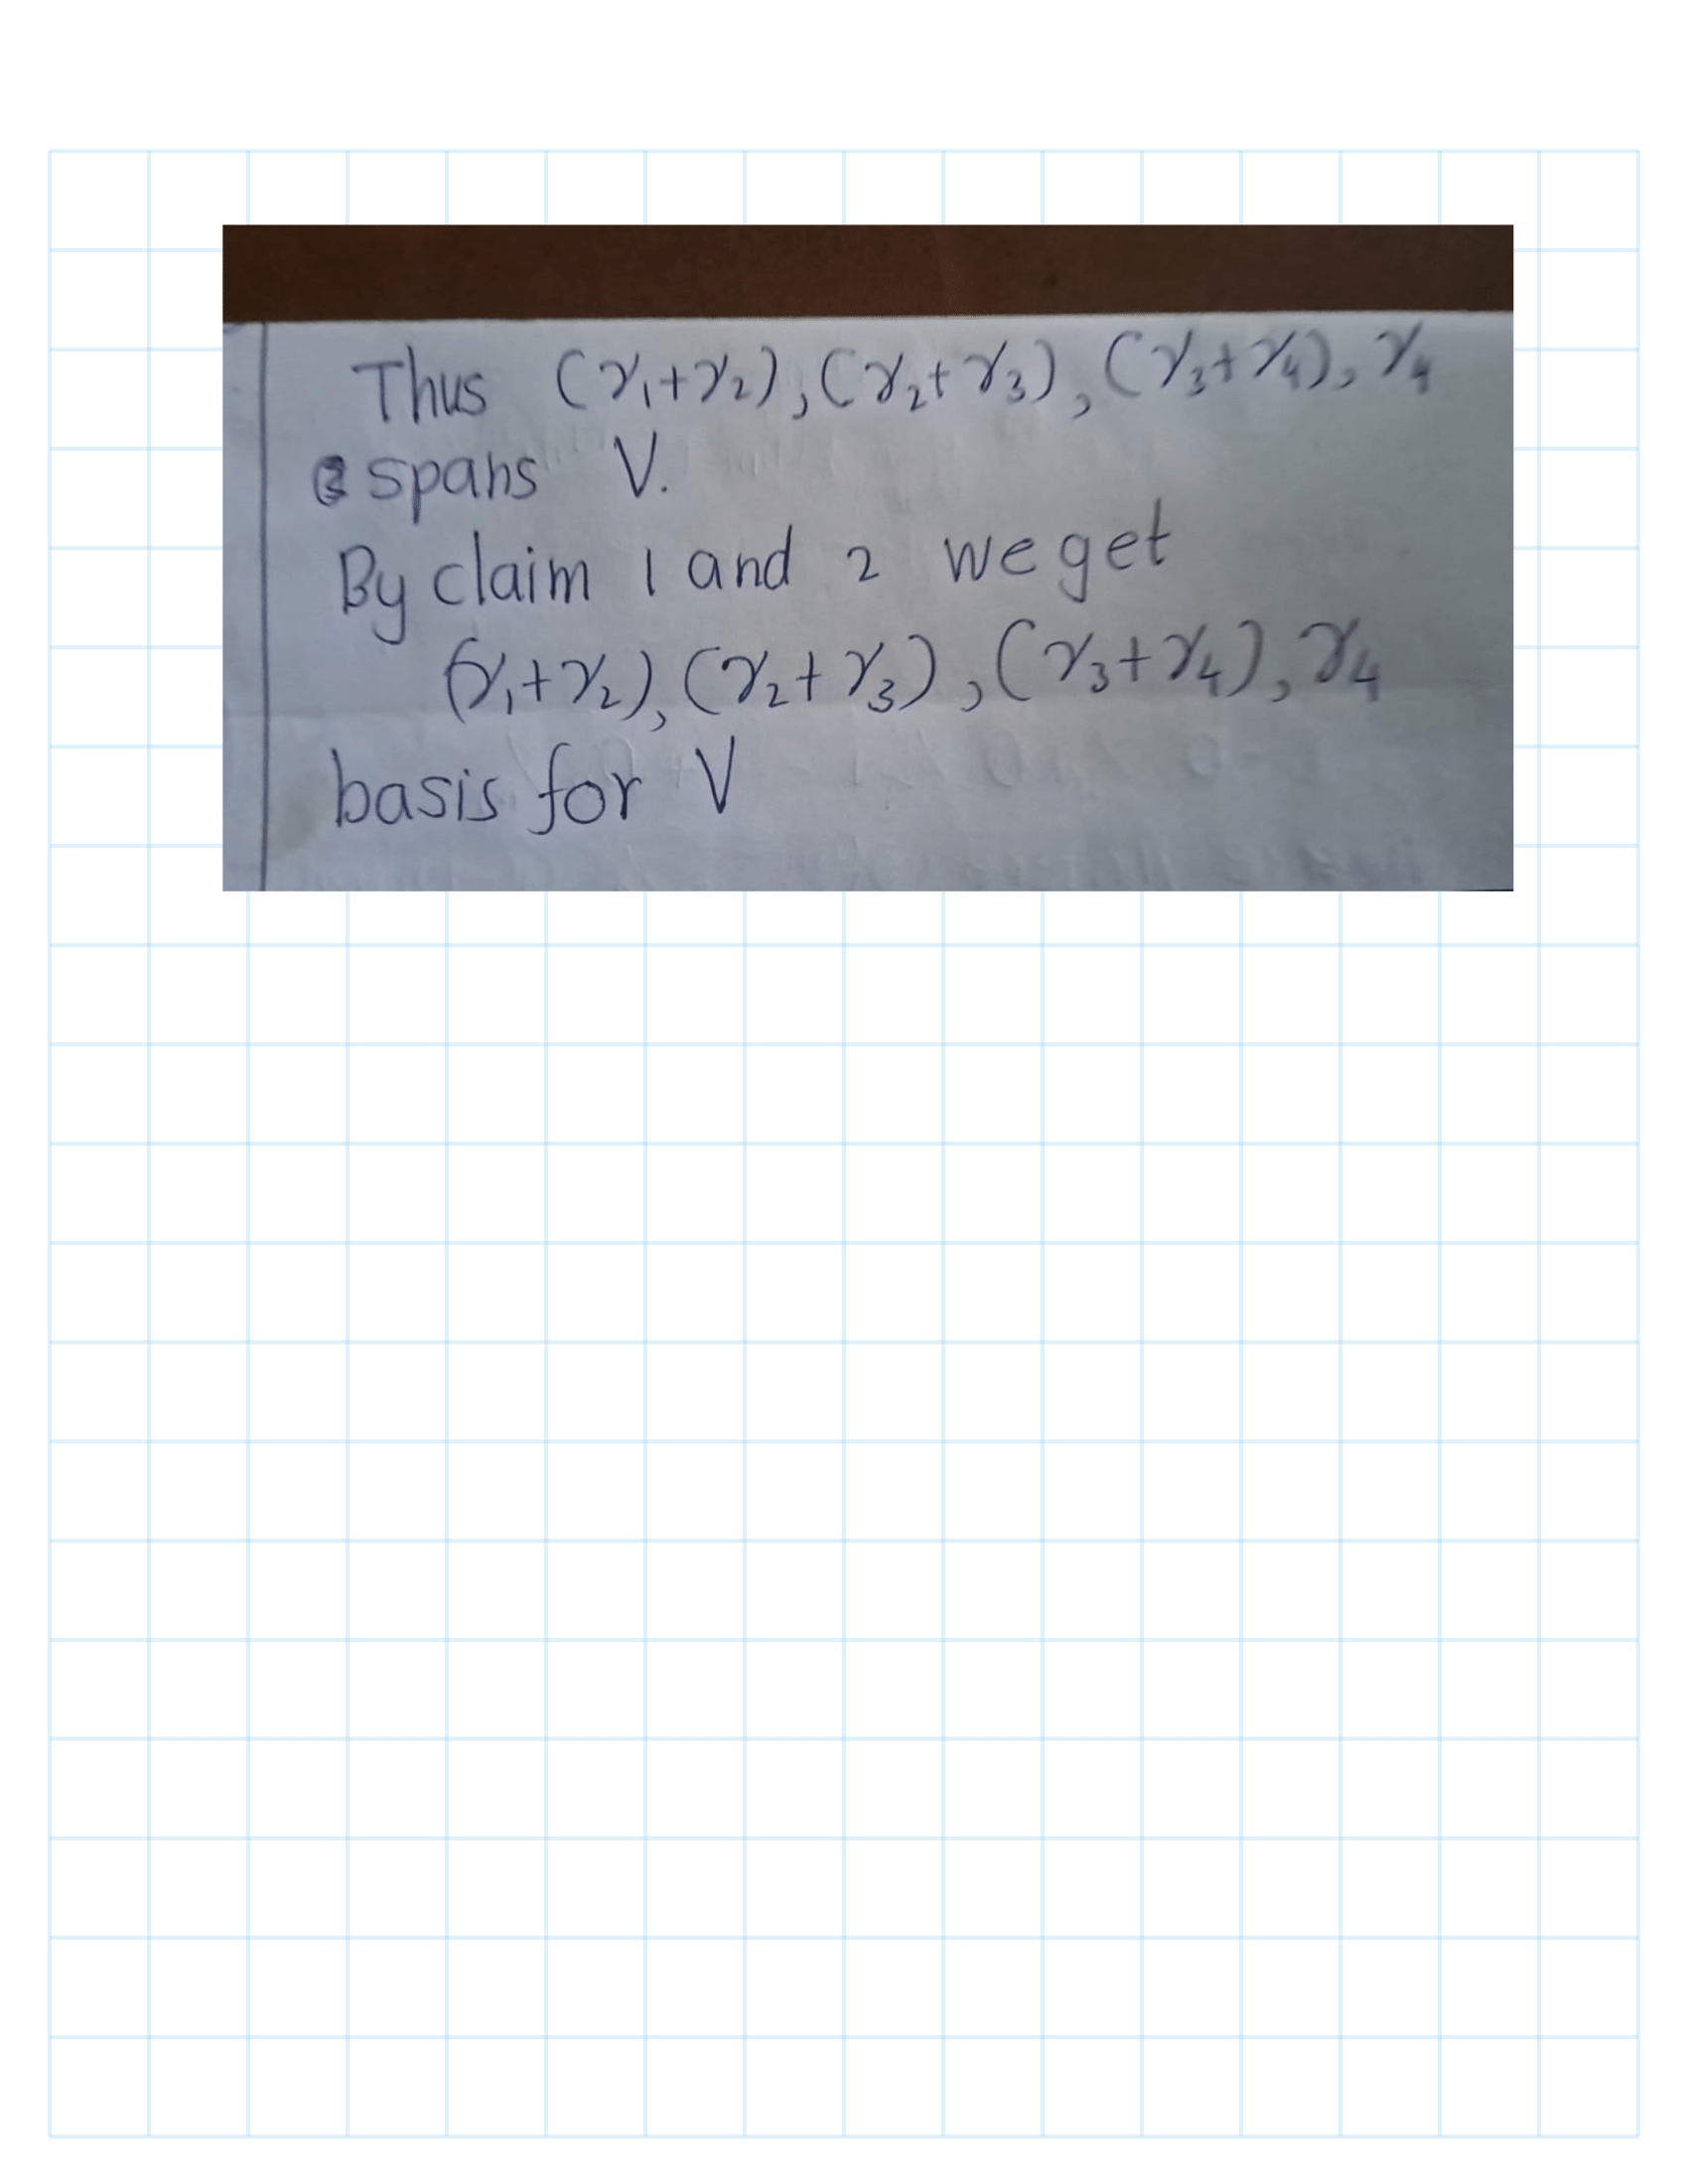 Thus (γ₁+γ₂), (γ₂+γ₃), (γ₃+γ₄), γ₄
spans V.
By claim 1 and 2 we get
(γ₁+γ₂), (γ₂+γ₃), (γ₃+γ₄), γ₄
basis for V